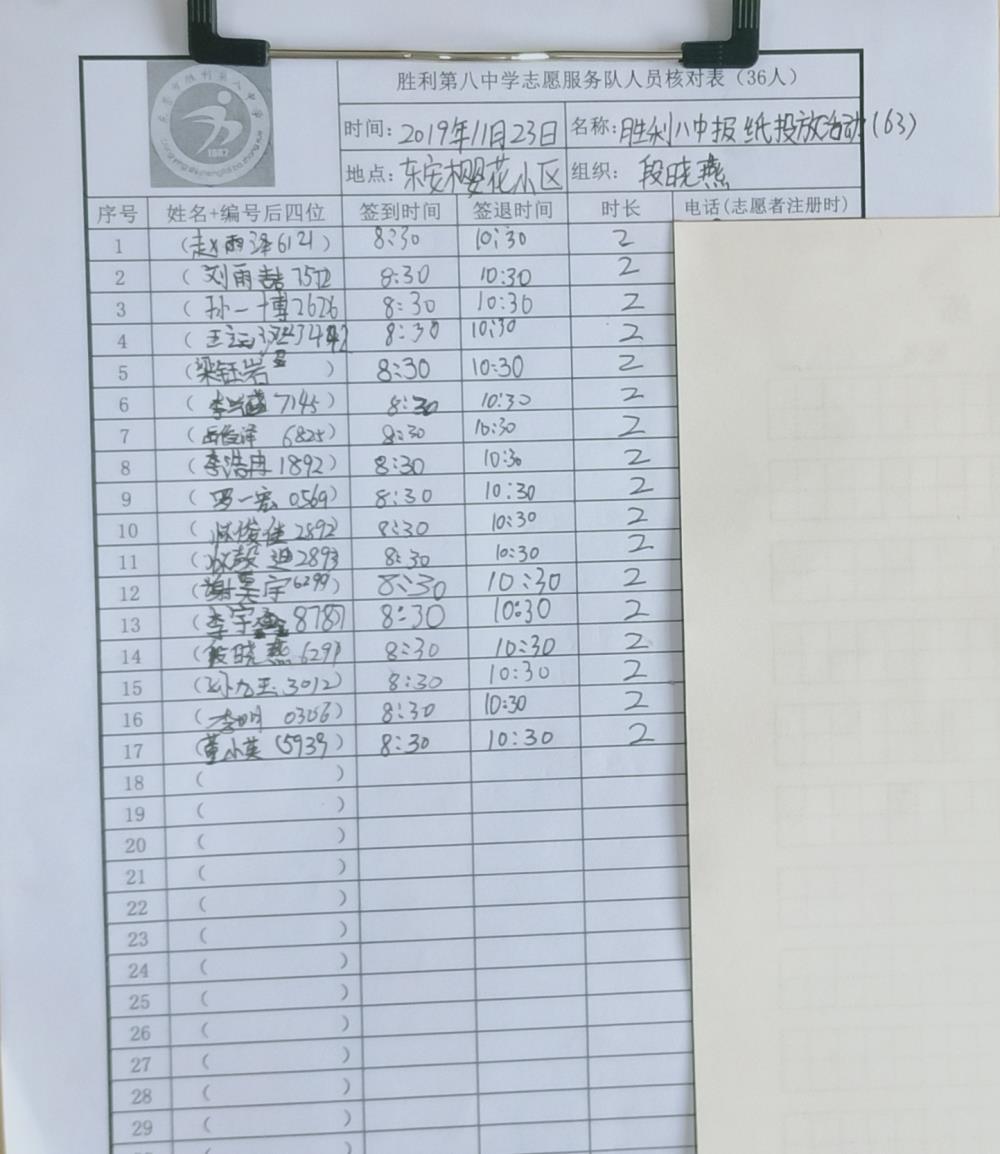 胜利第八中学志愿服务队人员核对表（36人）
时间：2019年11月23日 名称：胜利八中报纸投放活动(63)
地点：东安樱花小区 组织：段晓燕
序号 姓名+编号后四位 签到时间 签退时间 时长 电话(志愿者注册时)
1 (赵雨泽6121) 8:30 10:30 2
2 (刘雨喆 7512 8:30 10:30 2
3 (孙一博2626 8:30 10:30 2
4 ( 8:30 10:30 2
5 (梁钰岩 ) 8:30 10:30 2
6 (李兴盛 7145) 8:30 10:30 2
7 (岳俊泽 6825) 8:30 10:30 2
8 (李浩冉1892) 8:30 10:30 2
9 (罗一宏 0569) 8:30 10:30 2
10 ( 俊佳2892) 8:30 10:30 2
11 ( 迪2893 8:30 10:30 2
12 (谢昊宇6299) 8:30 10:30 2
13 (李宇鑫8787) 8:30 10:30 2
14 (段晓燕6291) 8:30 10:30 2
15 ( 玉3012) 8:30 10:30 2
16 (李明 0306) 8:30 10:30 2
17 (董小英(5939) 8:30 10:30 2
18 ( )
19 ( )
20 ( )
21 ( )
22 ( )
23 ( )
24 ( )
25 ( )
26 ( )
27 ( )
28 ( )
29 ( )